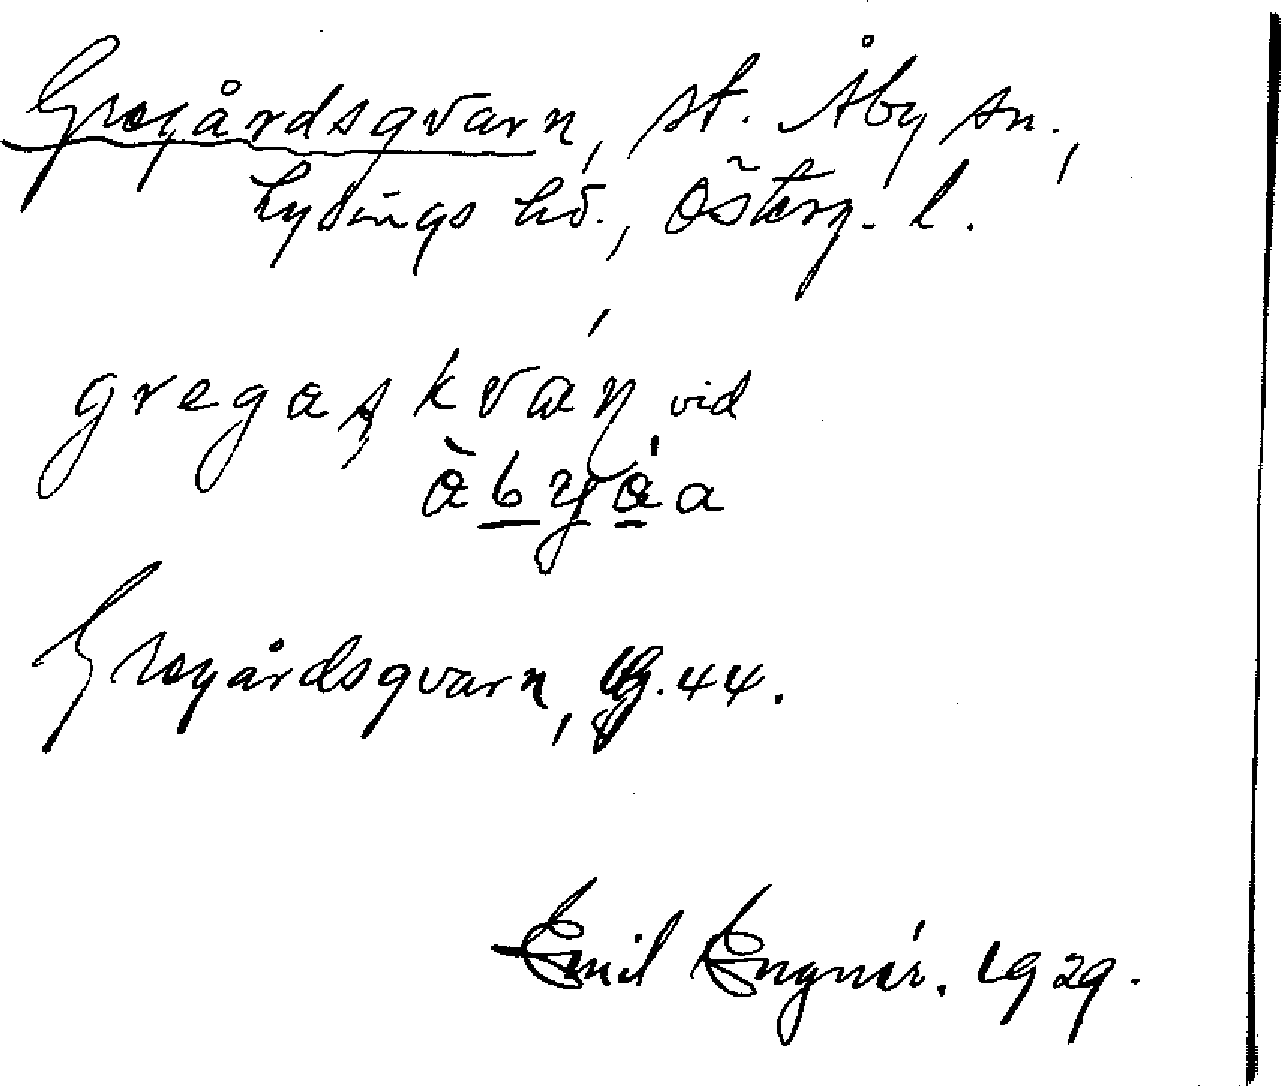 Gregårdsqvarn, st. Åby sn.,
Lysings hd., Österg. l.
gregaṣkván vid
àbyåa
Gregårdsqvarn, 44.
Emil Engnér. 1929.